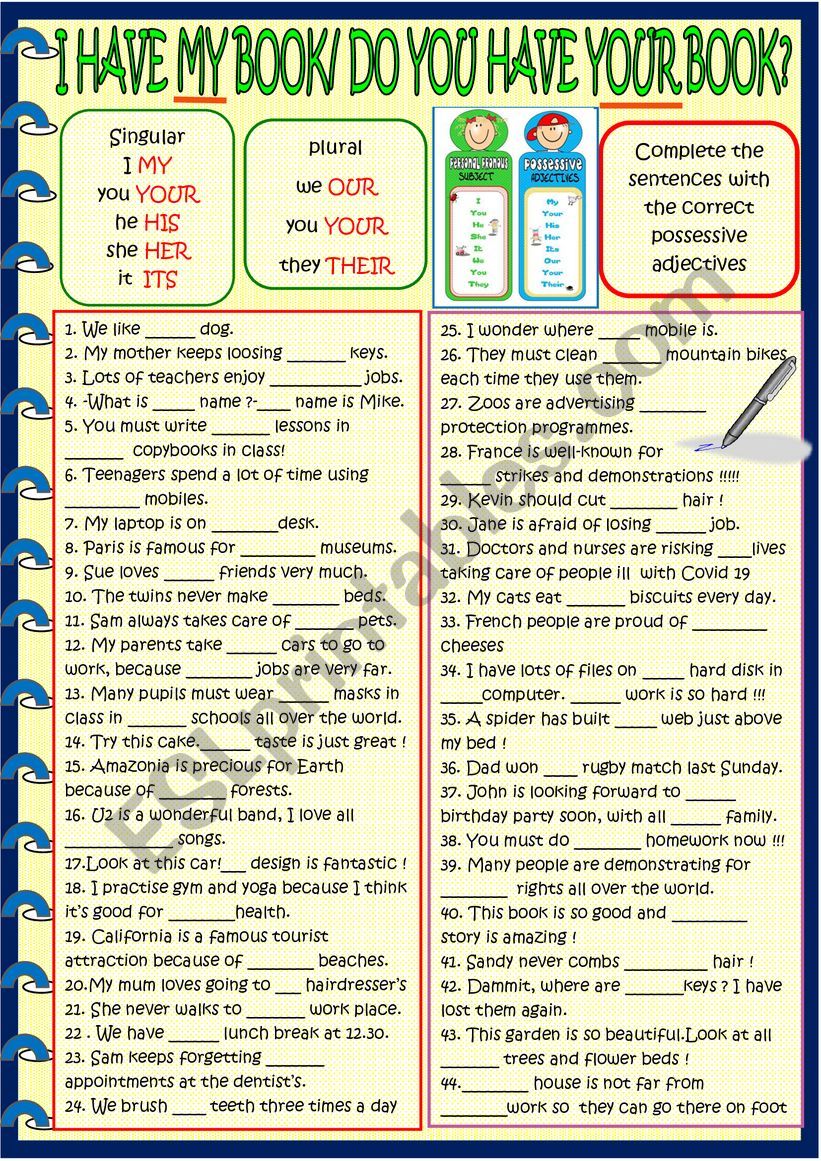 I HAVE MY BOOK/ DO YOU HAVE YOUR BOOK?
Singular
I MY
you YOUR
he HIS
she HER
it ITS
plural
we OUR
you YOUR
they THEIR
PERSONAL PRONOUS
SUBJECT
I
You
He
She
It
We
You
They
POSSESSIVE
ADJECTIVES
My
Your
His
Her
Its
Our
Your
Their
Complete the
sentences with
the correct
possessive
adjectives
1. We like ______ dog.
2. My mother keeps loosing _______ keys.
3. Lots of teachers enjoy ___________ jobs.
4. -What is _____ name ?-____ name is Mike.
5. You must write _______ lessons in
_______ copybooks in class!
6. Teenagers spend a lot of time using
_________ mobiles.
7. My laptop is on ________desk.
8. Paris is famous for _________ museums.
9. Sue loves ______ friends very much.
10. The twins never make ________ beds.
11. Sam always takes care of _______ pets.
12. My parents take ______ cars to go to
work, because ________ jobs are very far.
13. Many pupils must wear ______ masks in
class in _______ schools all over the world.
14. Try this cake.______ taste is just great !
15. Amazonia is precious for Earth
because of ________ forests.
16. U2 is a wonderful band, I love all
______________songs.
17.Look at this car!___ design is fantastic !
18. I practise gym and yoga because I think
it's good for ________health.
19. California is a famous tourist
attraction because of ________ beaches.
20.My mum loves going to ___ hairdresser's
21. She never walks to _______ work place.
22 . We have ______ lunch break at 12.30.
23. Sam keeps forgetting _______
appointments at the dentist's.
24. We brush ____ teeth three times a day
25. I wonder where _____ mobile is.
26. They must clean _______ mountain bikes
each time they use them.
27. Zoos are advertising ________
protection programmes.
28. France is well-known for
______ strikes and demonstrations !!!!!
29. Kevin should cut ________ hair !
30. Jane is afraid of losing ______ job.
31. Doctors and nurses are risking ____lives
taking care of people ill with Covid 19
32. My cats eat _______ biscuits every day.
33. French people are proud of _________
cheeses
34. I have lots of files on _____ hard disk in
_____computer. ______ work is so hard !!!
35. A spider has built _____ web just above
my bed !
36. Dad won ____ rugby match last Sunday.
37. John is looking forward to ______
birthday party soon, with all ______ family.
38. You must do ________ homework now !!!
39. Many people are demonstrating for
________ rights all over the world.
40. This book is so good and _________
story is amazing !
41. Sandy never combs __________ hair !
42. Dammit, where are _______keys ? I have
lost them again.
43. This garden is so beautiful.Look at all
_______ trees and flower beds !
44.________ house is not far from
________work so they can go there on foot
ESLprintables.com